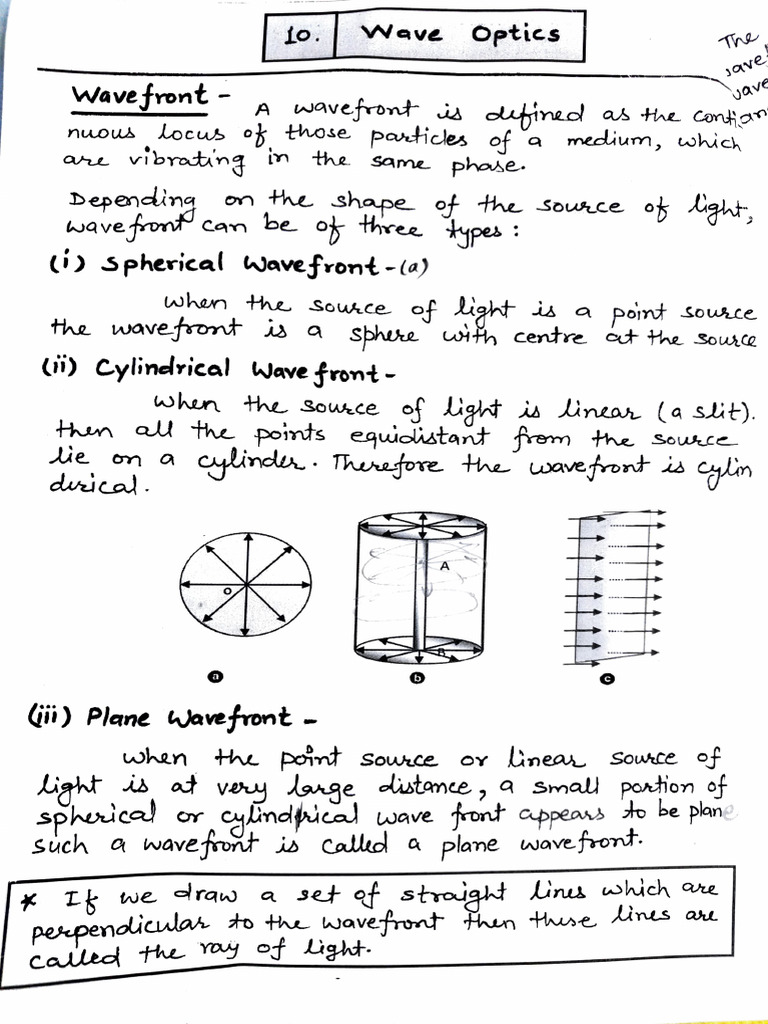 10. Wave Optics
The
Wavefront - A wavefront is defined as the conti
nuous locus of those particles of a medium, which
are vibrating in the same phase.
Depending on the shape of the source of light,
wavefront can be of three types :
(i) Spherical Wavefront - (a)
When the source of light is a point source
the wavefront is a sphere with centre at the source
(ii) Cylindrical Wavefront -
When the source of light is linear (a slit).
then all the points equidistant from the source
lie on a cylinder. Therefore the wavefront is cylin
dirical.
O
A
B
a
b
c
(iii) Plane Wavefront -
When the point source or linear source of
light is at very large distance, a small portion of
spherical or cylindrical wave front appears to be plane
such a wavefront is called a plane wavefront.
* If we draw a set of straight lines which are
perpendicular to the wavefront then these lines are
called the ray of light.